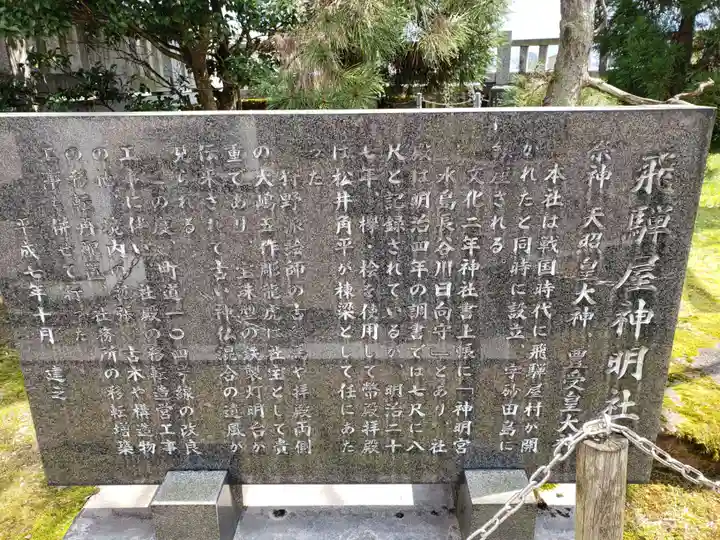 飛騨屋神明社
祭神 天照皇大神 豊受皇大神
本社は戦国時代に飛騨屋村が開
かれたと同時に設立、字砂田島に
される
文化二年神社書上帳に「神明宮
水島長谷川日向守」とあり、社
殿は明治四年の調書では七尺に八
尺と記録されているが、明治二十
七年、欅・桧を使用して幣殿拝殿
は松井角平が棟梁として任にあた
った
狩野派絵師の古 や拝殿両側
の大嶋五作彫龍虎は社宝として貴
重であり、 珠型の鉄製灯明台が
伝来されて古い神仏混合の遺風が
見られる
この度、町道一〇四号線の改良
工事に伴い 社殿の移転造営工事
の他、境内の 、古木や構造物
の移 、社務所の移転増築
工事も併せて行った
平成七年十月 建之